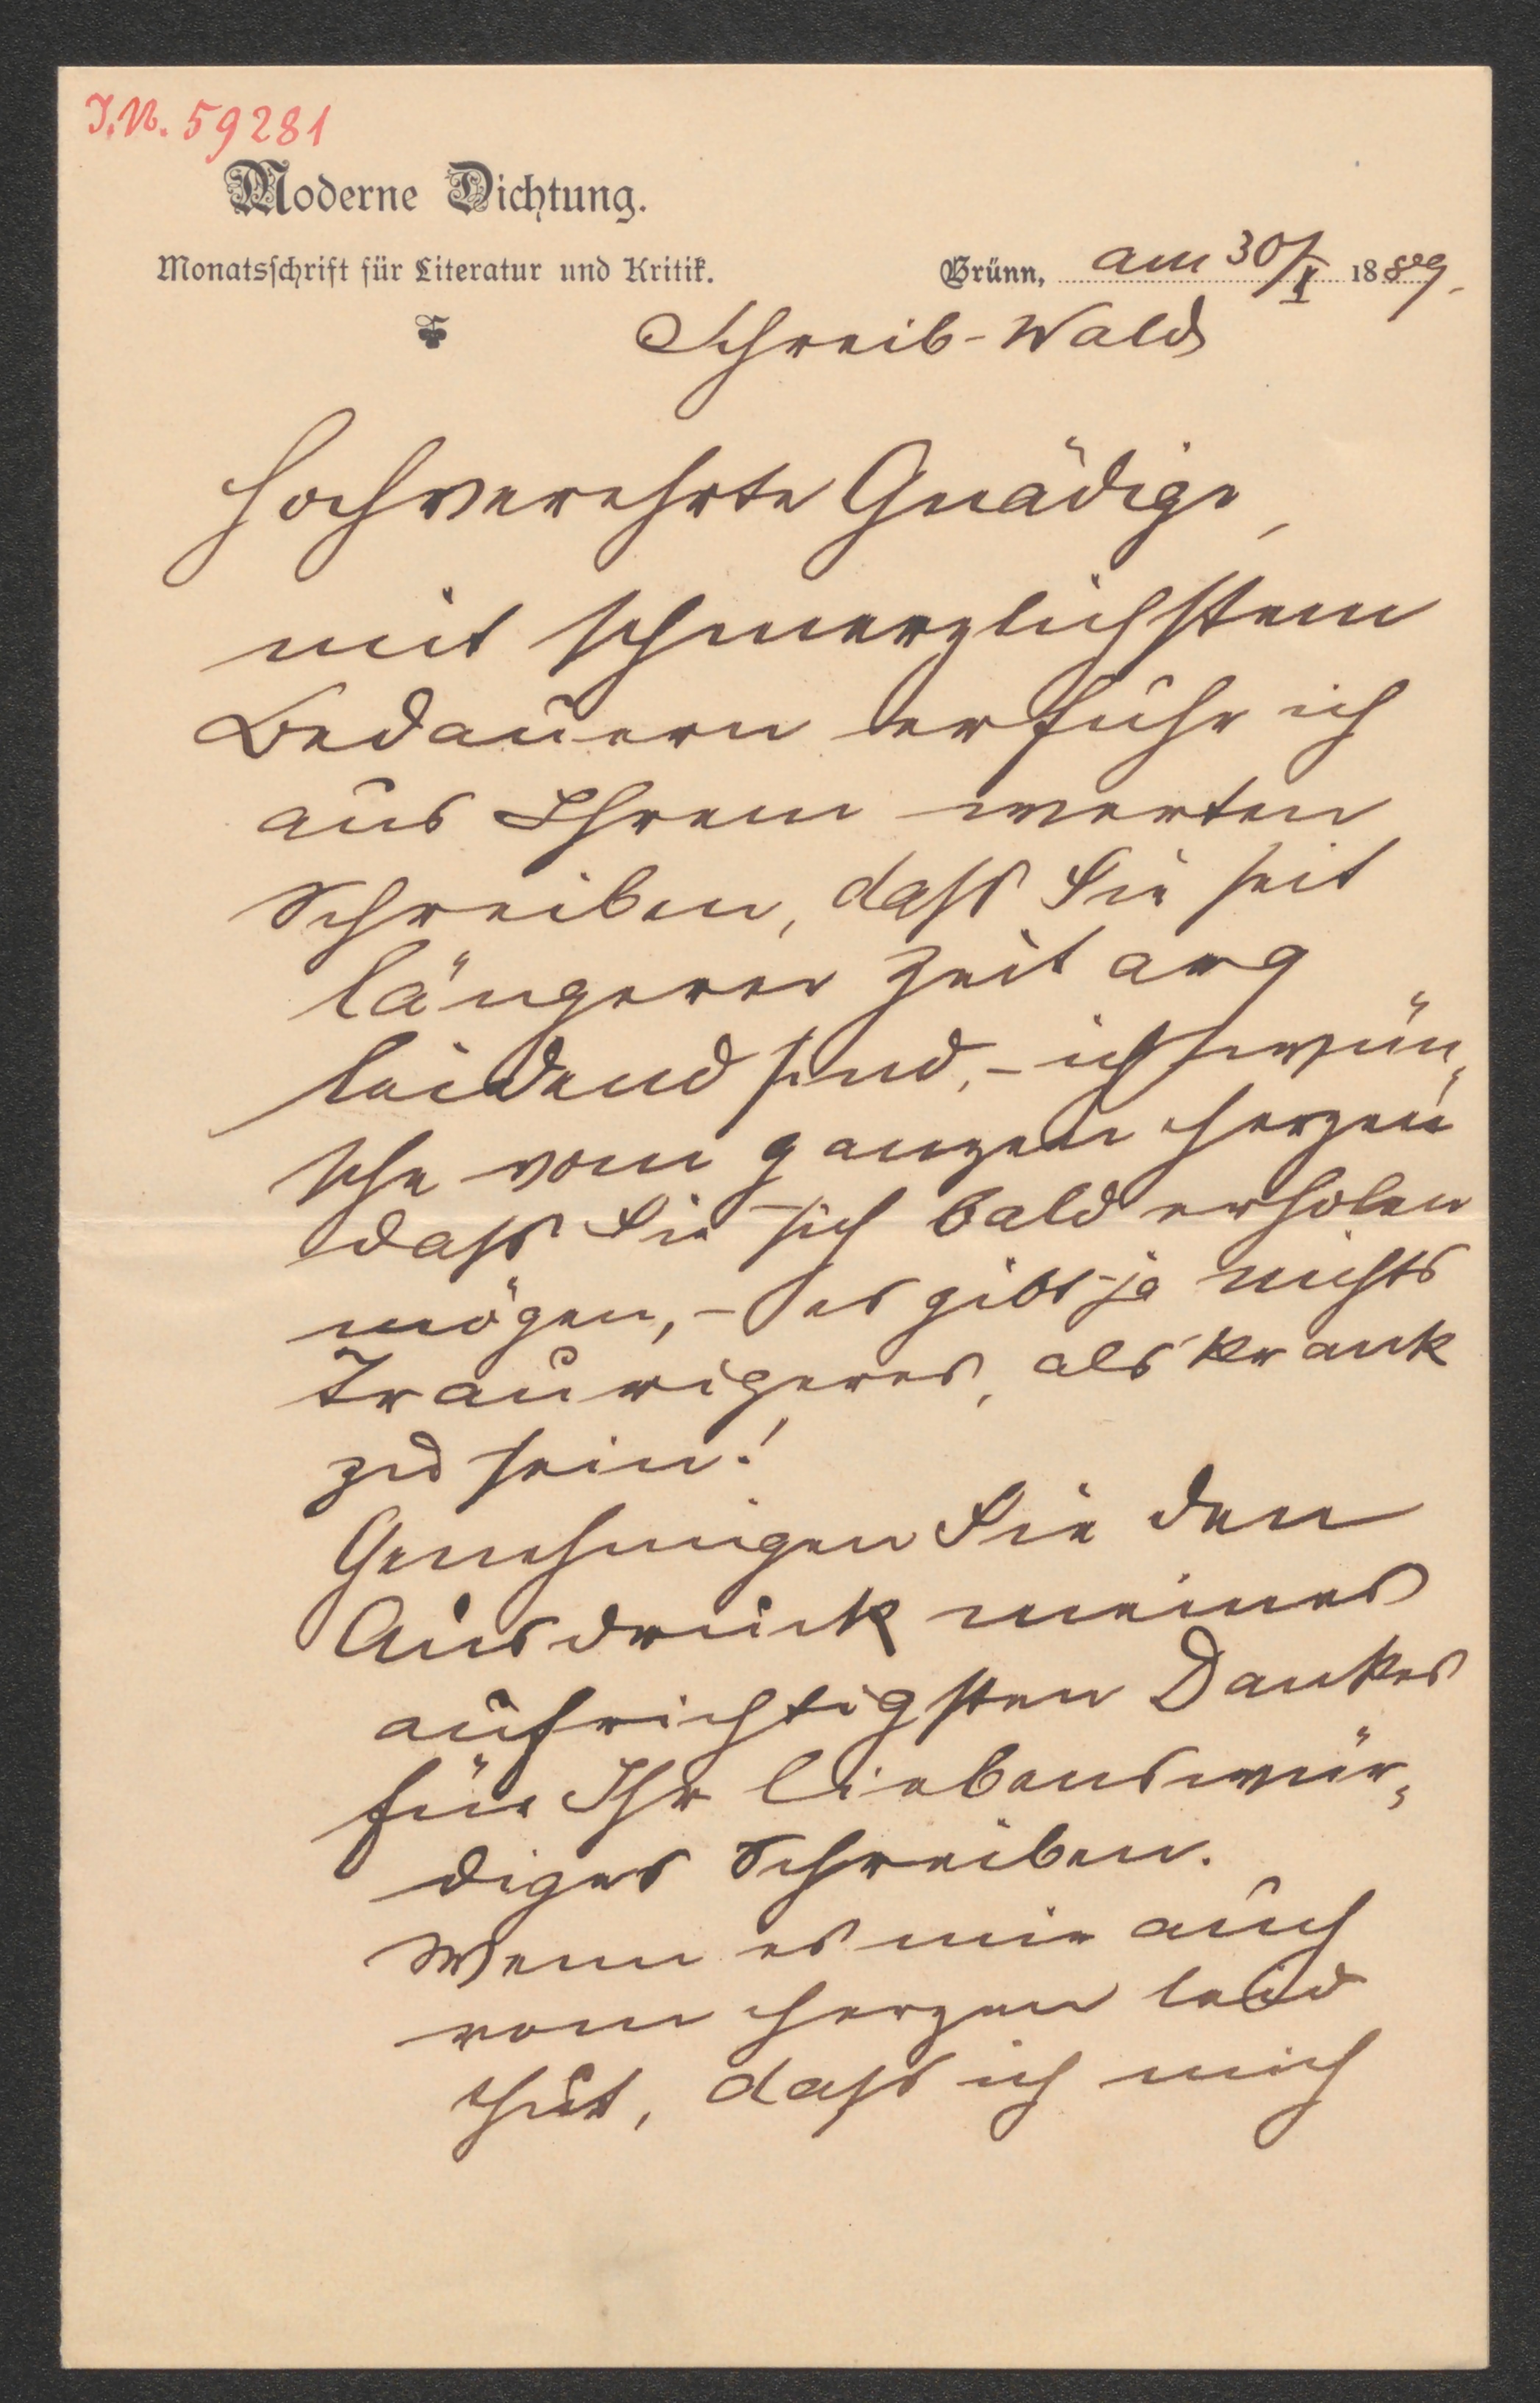 J.N. 59281
Moderne Dichtung.
Monatsschrift für Literatur und Kritik.
Brünn, am 30/X 1889.
Schreib-Wald
Hochverehrte Gnädige,
mit schmerzlichstem
Bedauern erfuhr ich
aus Ihrem werten
Schreiben, dass Sie seit
längerer Zeit arg
leidend sind, - ich wün-
sche vom ganzen Herzen
dass Sie sich bald erholen
mögen, - es gibt ja nichts
Traurigeres, als krank
zu sein!
Genehmigen Sie den
Ausdruck meines
aufrichtigsten Dankes
für Ihr liebenswür-
diges Schreiben.
Wenn es mir auch
vom Herzen leid
thut, dass ich mich